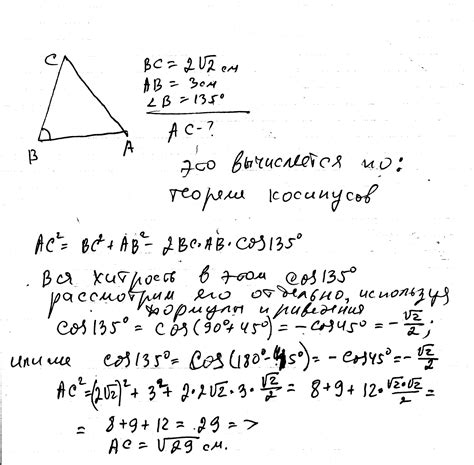 C
B
A
BC = 2√2 см
AB = 3 см
∠B = 135°
AC - ?
это вычисляется по:
теореме косинусов
AC² = BC² + AB² - 2BC·AB·cos135°
Вся хитрость в этом cos135°
рассмотрим его отдельно, используя
формулы приведения
cos135° = cos(90°+45°) = -cos45° = -√2/2;
или же cos135° = cos(180°-45°) = -cos45° = -√2/2
AC² = (2√2)² + 3² + 2·2√2·3·√2/2 = 8+9+12·√2·√2/2 =
= 8+9+12 = 29 =>
AC = √29 см.